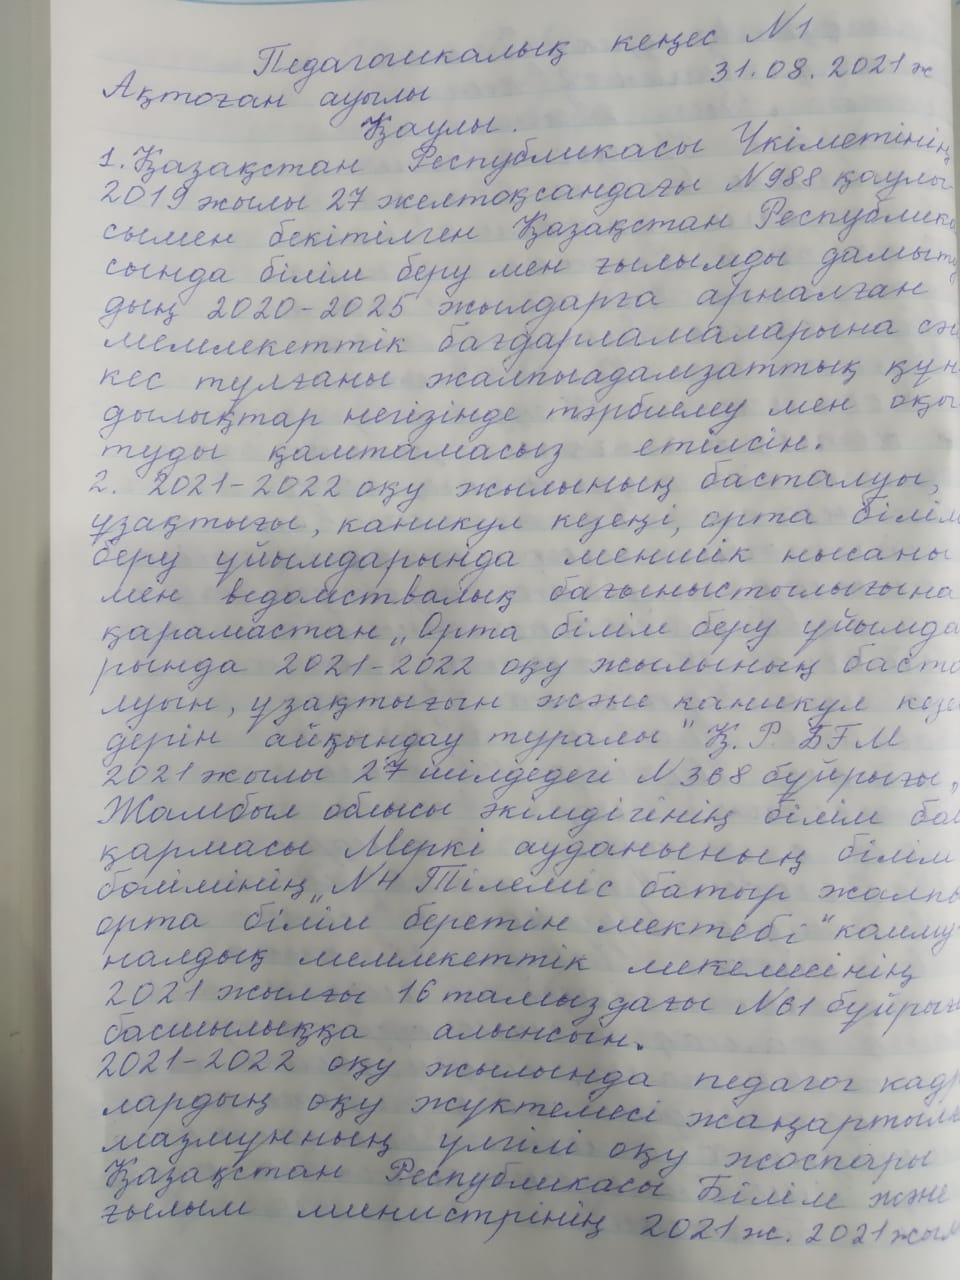 Педагогикалық кеңес №1
Ақтоған ауылы 31.08.2021ж
Қаулы.
1. Қазақстан Республикасы Үкіметінің
2019 жылы 27 желтоқсандағы №988 қаулы
сымен бекітілген Қазақстан Республика
сында білім беру мен ғылымды дамыту
дың 2020-2025 жылдарға арналған
мемлекеттік бағдарламаларына сәй
кес тұлғаны жалпыадамзаттық құн
дылықтар негізінде тәрбиелеу мен оқы
туды қамтамасыз етілсін.
2. 2021-2022 оқу жылының басталуы,
ұзақтығы, каникул кезеңі, орта білім
беру ұйымдарында меншік нысаны
мен ведомствалық бағыныстылығына
қарамастан „Орта білім беру ұйымда
рында 2021-2022 оқу жылының баста
луын, ұзақтығын және каникул кезең
дерін айқындау туралы" Қ.Р. БҒМ
2021 жылы 27 шілдедегі №368 бұйрығы,
Жамбыл облысы әкімдігінің білім бас
қармасы Меркі ауданының білім
бөлімінің „№4 Тілеміс батыр жалпы
орта білім беретін мектебі" комму
налдық мемлекеттік мекемесінің
2021 жылғы 16 тамыздағы №61 бұйрығы
басшылыққа алынсын.
2021-2022 оқу жылында педагог кадр
лардың оқу жүктемесі жаңартылған
мазмұнның үлгілі оқу жоспары
Қазақстан Республикасы Білім және
ғылым министрінің 2021 ж. 2021 жыл